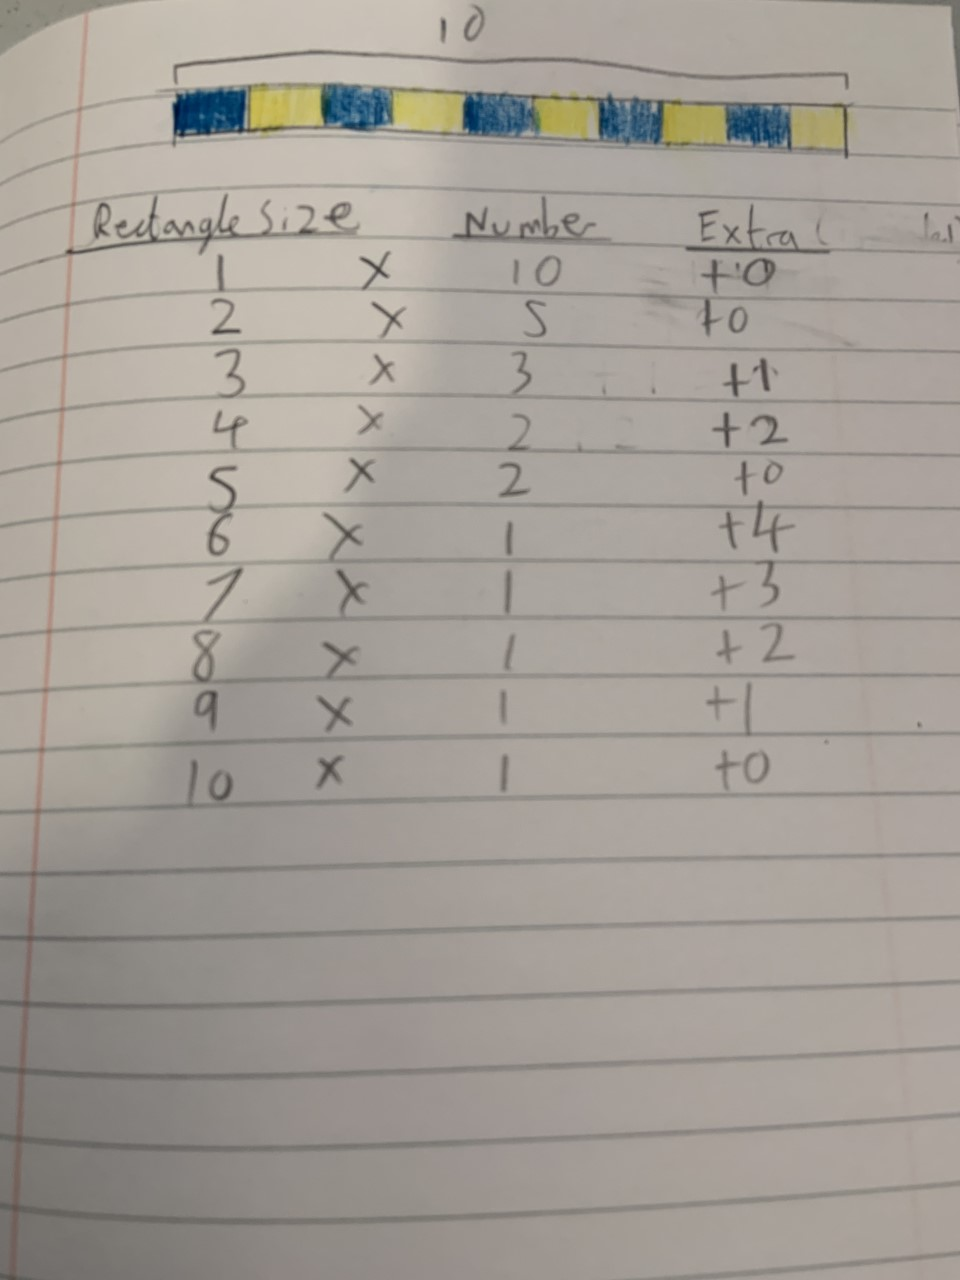 10
Rectangle Size Number Extra
1 x 10 +0
2 x 5 +0
3 x 3 +1
4 x 2 +2
5 x 2 +0
6 x 1 +4
7 x 1 +3
8 x 1 +2
9 x 1 +1
10 x 1 +0